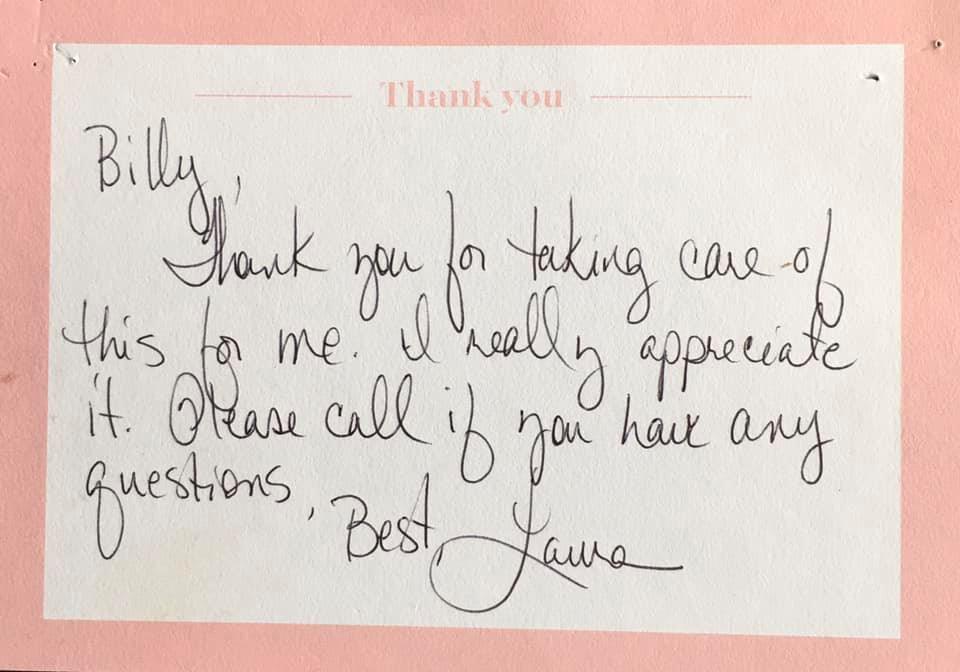 Thank you
Billy,
Thank you for taking care of
this for me. I really appreciate
it. Please call if you have any
questions.
Best, Laura